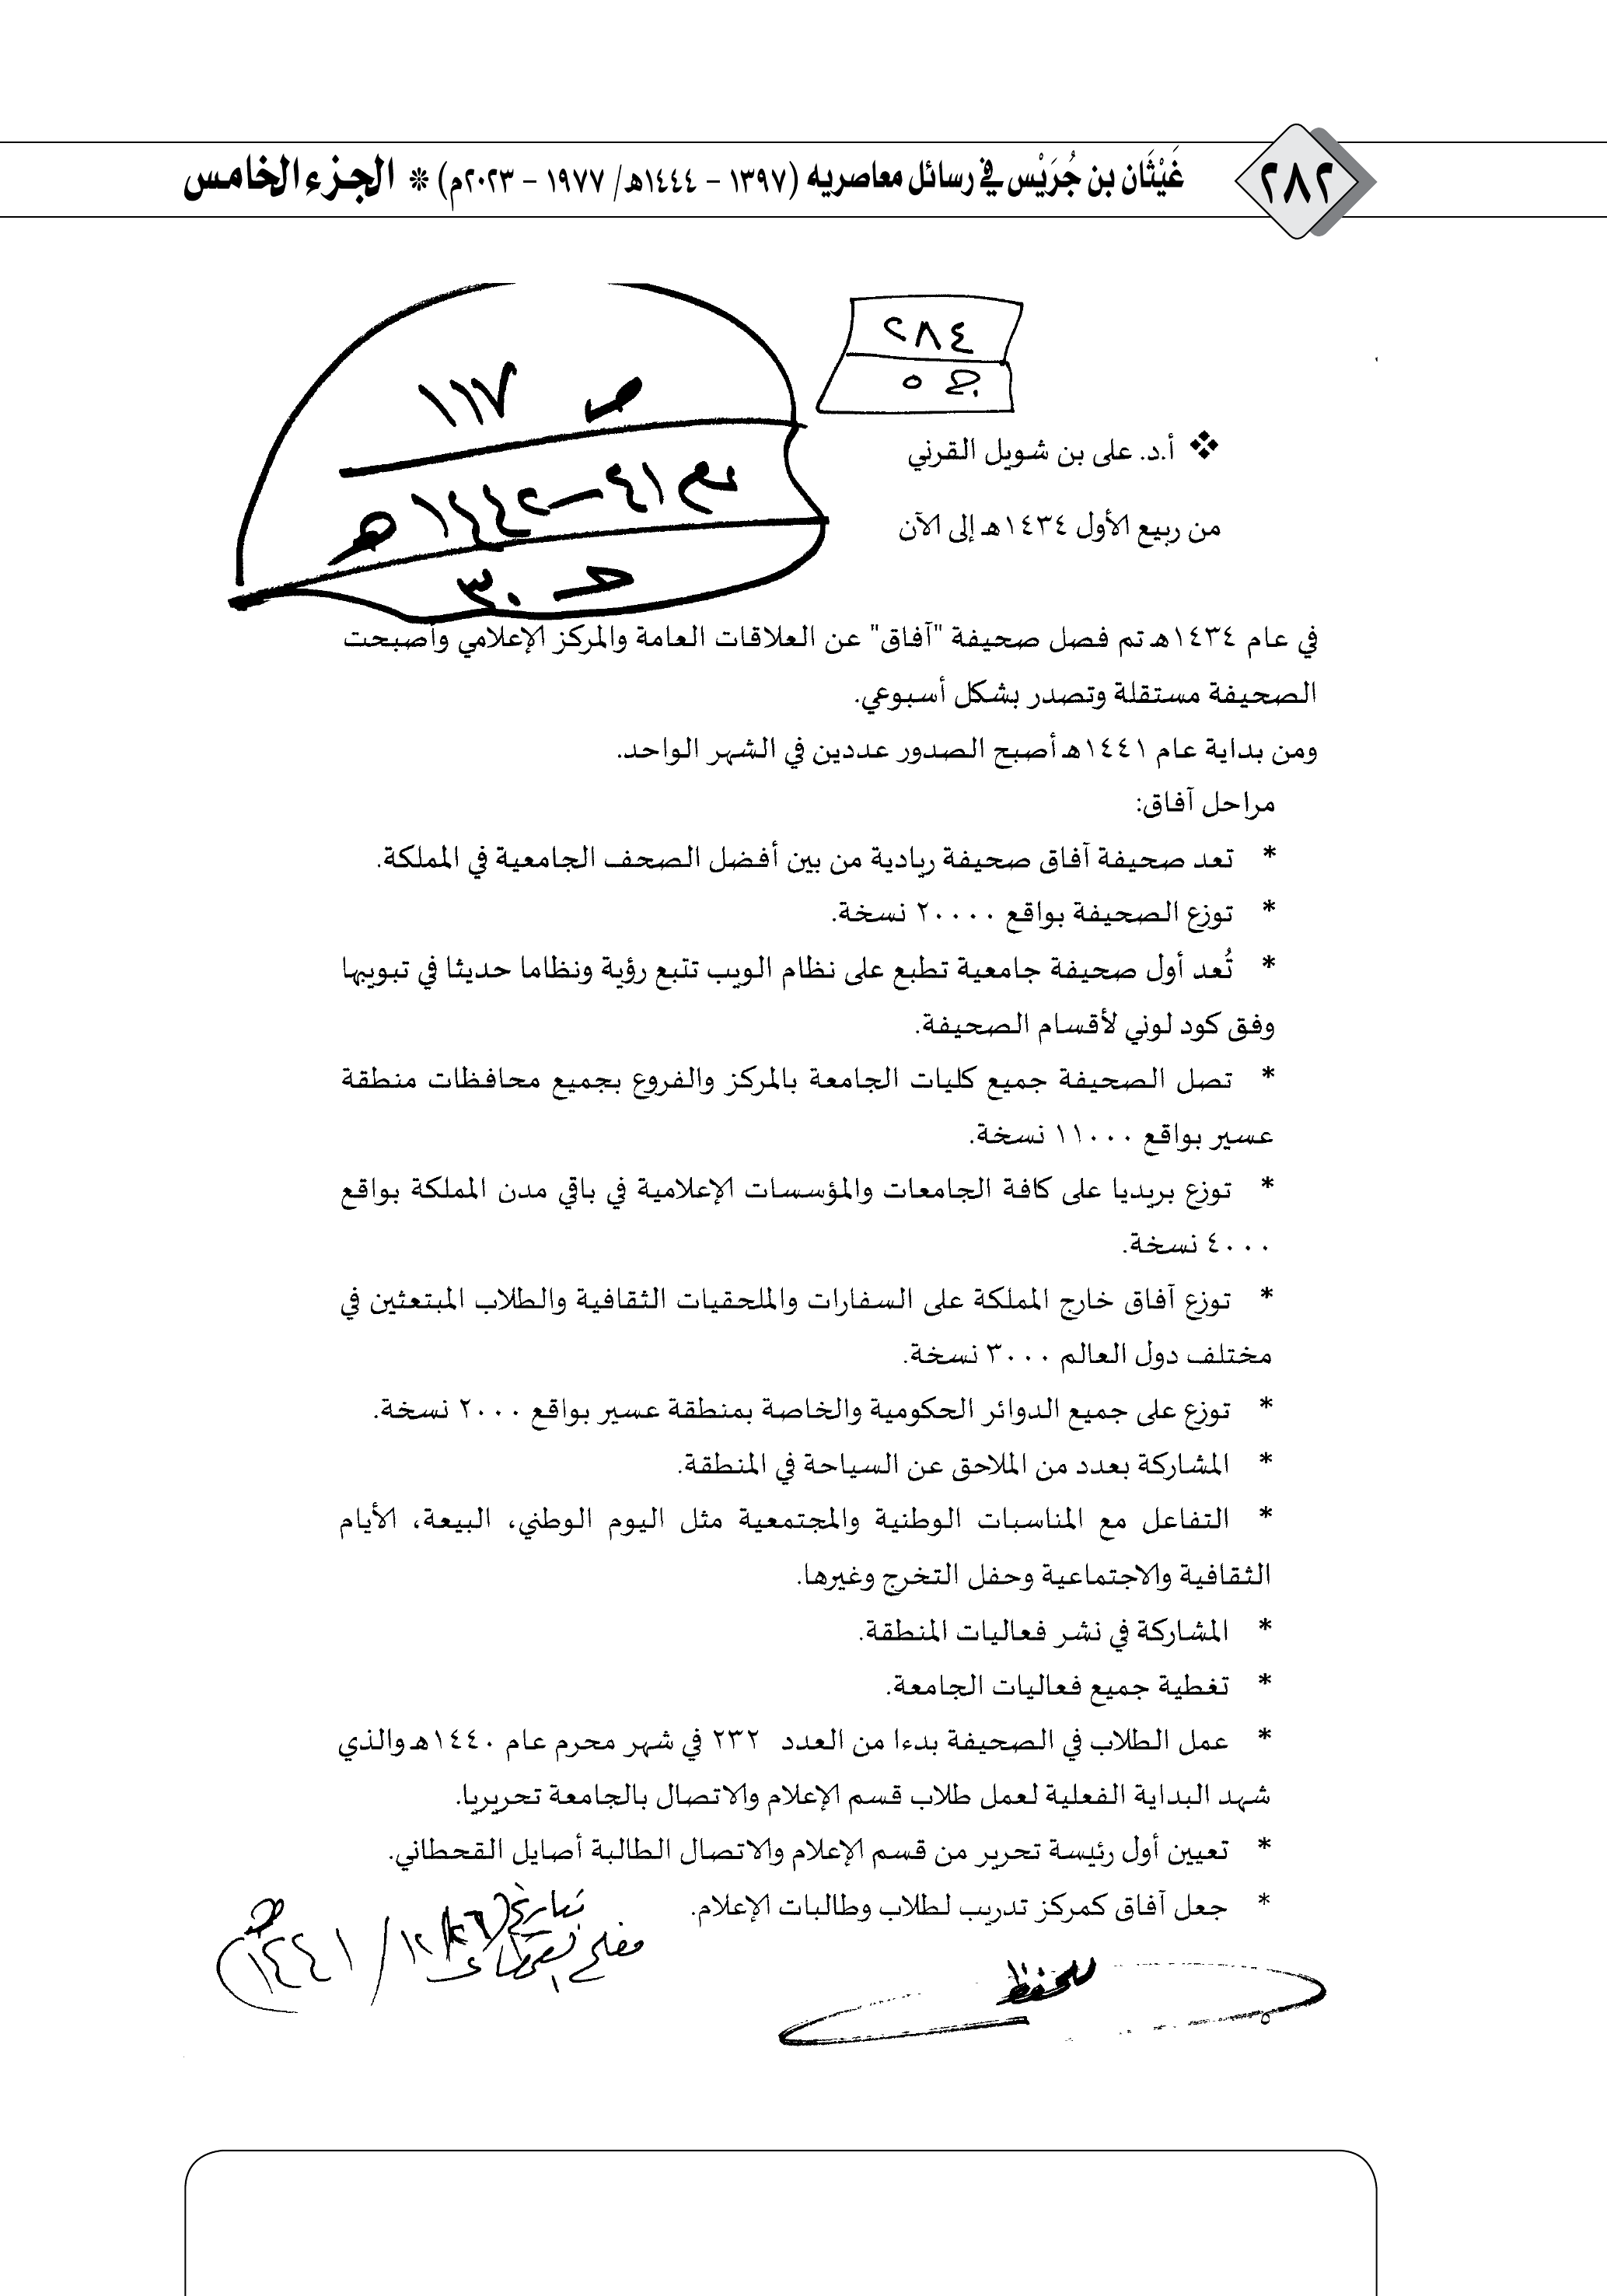 ٢٨٢
غَيْثَان بن جُرَيْس في رسائل معاصريه (١٣٩٧ - ١٤٤٤هـ/ ١٩٧٧ - ٢٠٢٣م) * الجزء الخامس
٢٨٤
ج ٥
ص ١١٧
١٤٤٢-٤١ هـ
٣٠
❖ أ.د. علي بن شويل القرني
من ربيع الأول ١٤٣٤هـ إلى الآن
في عام ١٤٣٤هـ تم فصل صحيفة "آفاق" عن العلاقات العامة والمركز الإعلامي وأصبحت
الصحيفة مستقلة وتصدر بشكل أسبوعي.
ومن بداية عام ١٤٤١هـ أصبح الصدور عددين في الشهر الواحد.
مراحل آفاق:
* تعد صحيفة آفاق صحيفة ريادية من بين أفضل الصحف الجامعية في المملكة.
* توزع الصحيفة بواقع ٢٠٠٠٠ نسخة.
* تُعد أول صحيفة جامعية تطبع على نظام الويب تتبع رؤية ونظاما حديثا في تبويبها
وفق كود لوني لأقسام الصحيفة.
* تصل الصحيفة جميع كليات الجامعة بالمركز والفروع بجميع محافظات منطقة
عسير بواقع ١١٠٠٠ نسخة.
* توزع بريديا على كافة الجامعات والمؤسسات الإعلامية في باقي مدن المملكة بواقع
٤٠٠٠ نسخة.
* توزع آفاق خارج المملكة على السفارات والملحقيات الثقافية والطلاب المبتعثين في
مختلف دول العالم ٣٠٠٠ نسخة.
* توزع على جميع الدوائر الحكومية والخاصة بمنطقة عسير بواقع ٢٠٠٠ نسخة.
* المشاركة بعدد من الملاحق عن السياحة في المنطقة.
* التفاعل مع المناسبات الوطنية والمجتمعية مثل اليوم الوطني، البيعة، الأيام
الثقافية والاجتماعية وحفل التخرج وغيرها.
* المشاركة في نشر فعاليات المنطقة.
* تغطية جميع فعاليات الجامعة.
* عمل الطلاب في الصحيفة بدءا من العدد ٢٣٢ في شهر محرم عام ١٤٤٠هـ والذي
شهد البداية الفعلية لعمل طلاب قسم الإعلام والاتصال بالجامعة تحريريا.
* تعيين أول رئيسة تحرير من قسم الإعلام والاتصال الطالبة أصايل القحطاني.
* جعل آفاق كمركز تدريب لطلاب وطالبات الإعلام.
مفلح القحطاني
بتاريخ ١٢/ ١٤٤١هـ)
للحفظ